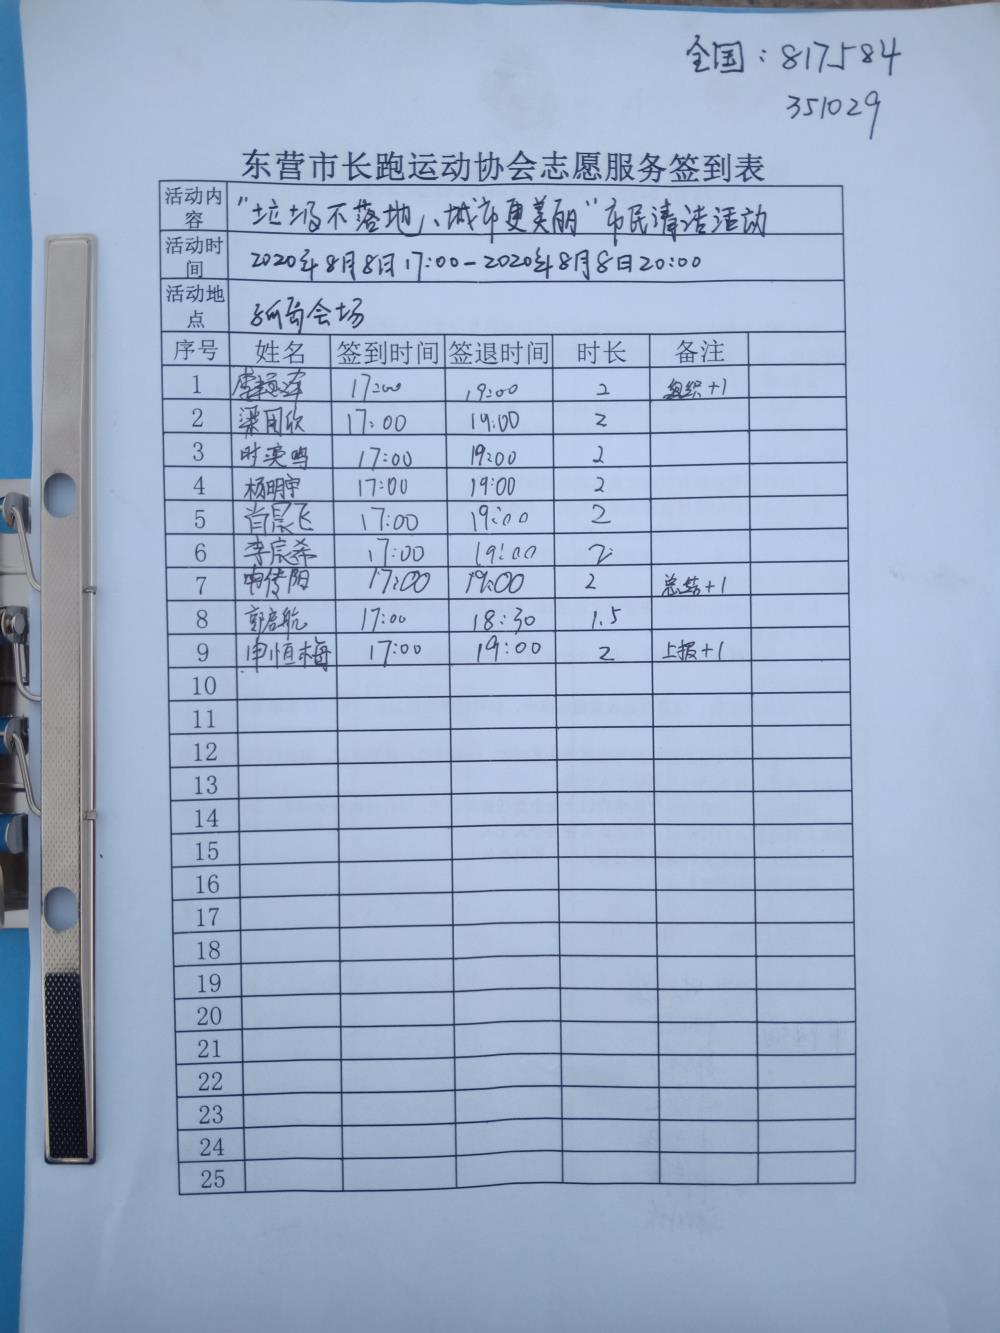 全国：817584
351029
东营市长跑运动协会志愿服务签到表
活动内容 "垃圾不落地、城市更美丽"市民清洁活动
活动时间 2020年8月8日17:00-2020年8月8日20:00
活动地点 会场
序号 姓名 签到时间 签退时间 时长 备注
1 17:00 19:00 2 组织+1
2 17:00 19:00 2
3 17:00 19:00 2
4 杨明宇 17:00 19:00 2
5 肖晨飞 17:00 19:00 2
6 李宗希 17:00 19:00 2
7 申传阳 17:00 19:00 2 总结+1
8 郭启航 17:00 18:30 1.5
9 申恒梅 17:00 19:00 2 上报+1
10
11
12
13
14
15
16
17
18
19
20
21
22
23
24
25